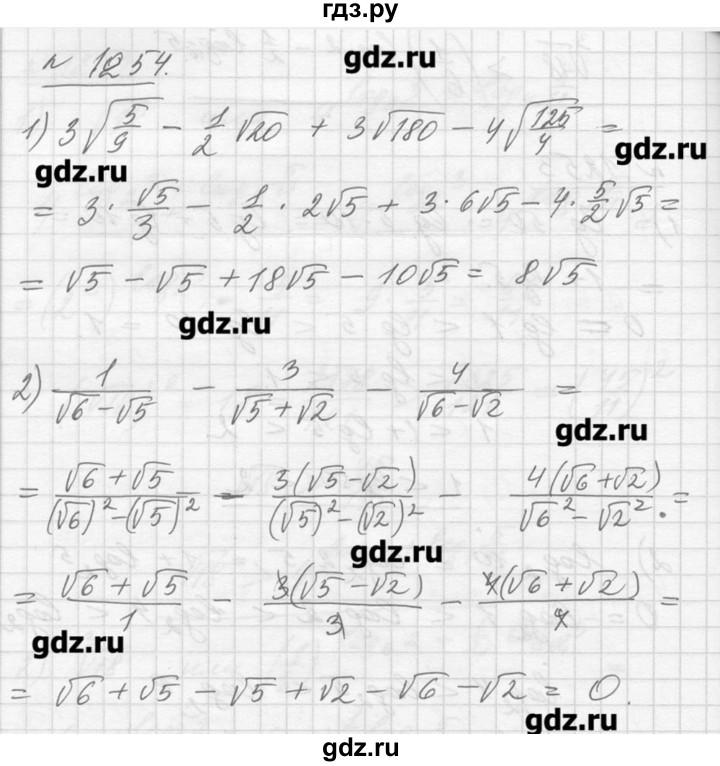 гдз.ру
gdz.ru
№ 1254.
1) 3√(5/9) − 1/2 √20 + 3√180 − 4√(125/4) =
gdz.ru
gdz.ru
= 3 · √5/3 − 1/2 · 2√5 + 3 · 6√5 − 4 · 5/2 √5 =
= √5 − √5 + 18√5 − 10√5 = 8√5
gdz.ru
2) 1/(√6 − √5) − 3/(√5 + √2) − 4/(√6 − √2) =
gdz.ru
= (√6 + √5)/((√6)² − (√5)²) − 3(√5 − √2)/((√5)² − (√2)²) − 4(√6 + √2)/(√6² − √2²) . =
gdz.ru
= (√6 + √5)/1 − 3(√5 − √2)/3 − 4(√6 + √2)/4 =
gdz.ru
= √6 + √5 − √5 + √2 − √6 − √2 = 0.
gdz.ru
gdz.ru